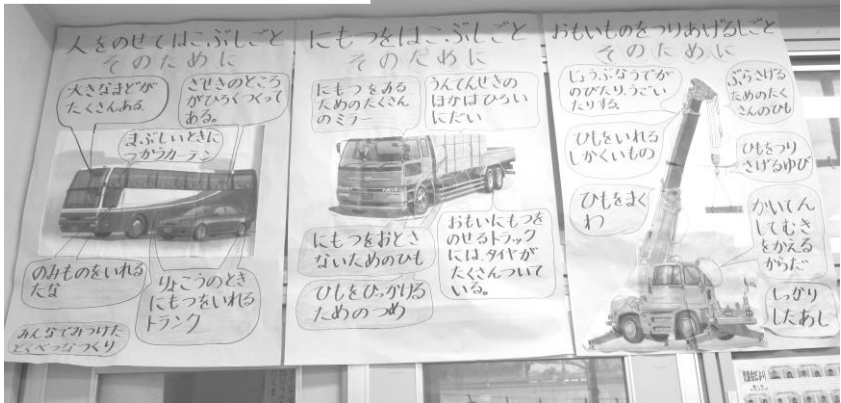 人をのせてはこぶしごと
そのために
大きなまどが
たくさんある。
ざせきのところ
がひろくつくって
ある。
まぶしいときに
つかうカーテン
のみものをいれる
たな
りょこうのとき
にもつをいれる
トランク
みんなでみつけた
とくべつなつくり
にもつをはこぶしごと
そのために
にもつをみる
ためのたくさん
のミラー
うんてんせきの
ほかはひろい
にだい
にもつをおとさ
ないためのひも
ひもをひっかける
ためのつめ
おもいにもつを
のせるトラック
には、タイヤが
たくさんついて
いる。
おもいものをつりあげるしごと
そのために
じょうぶなうでが
のびたり、うごい
たりする。
ぶらさげる
ためのたく
さんのひも
ひもをいれる
しかくいもの
ひもをつり
さげるゆび
ひもをまく
わ
かいてん
してむき
をかえる
からだ
しっかり
したあし